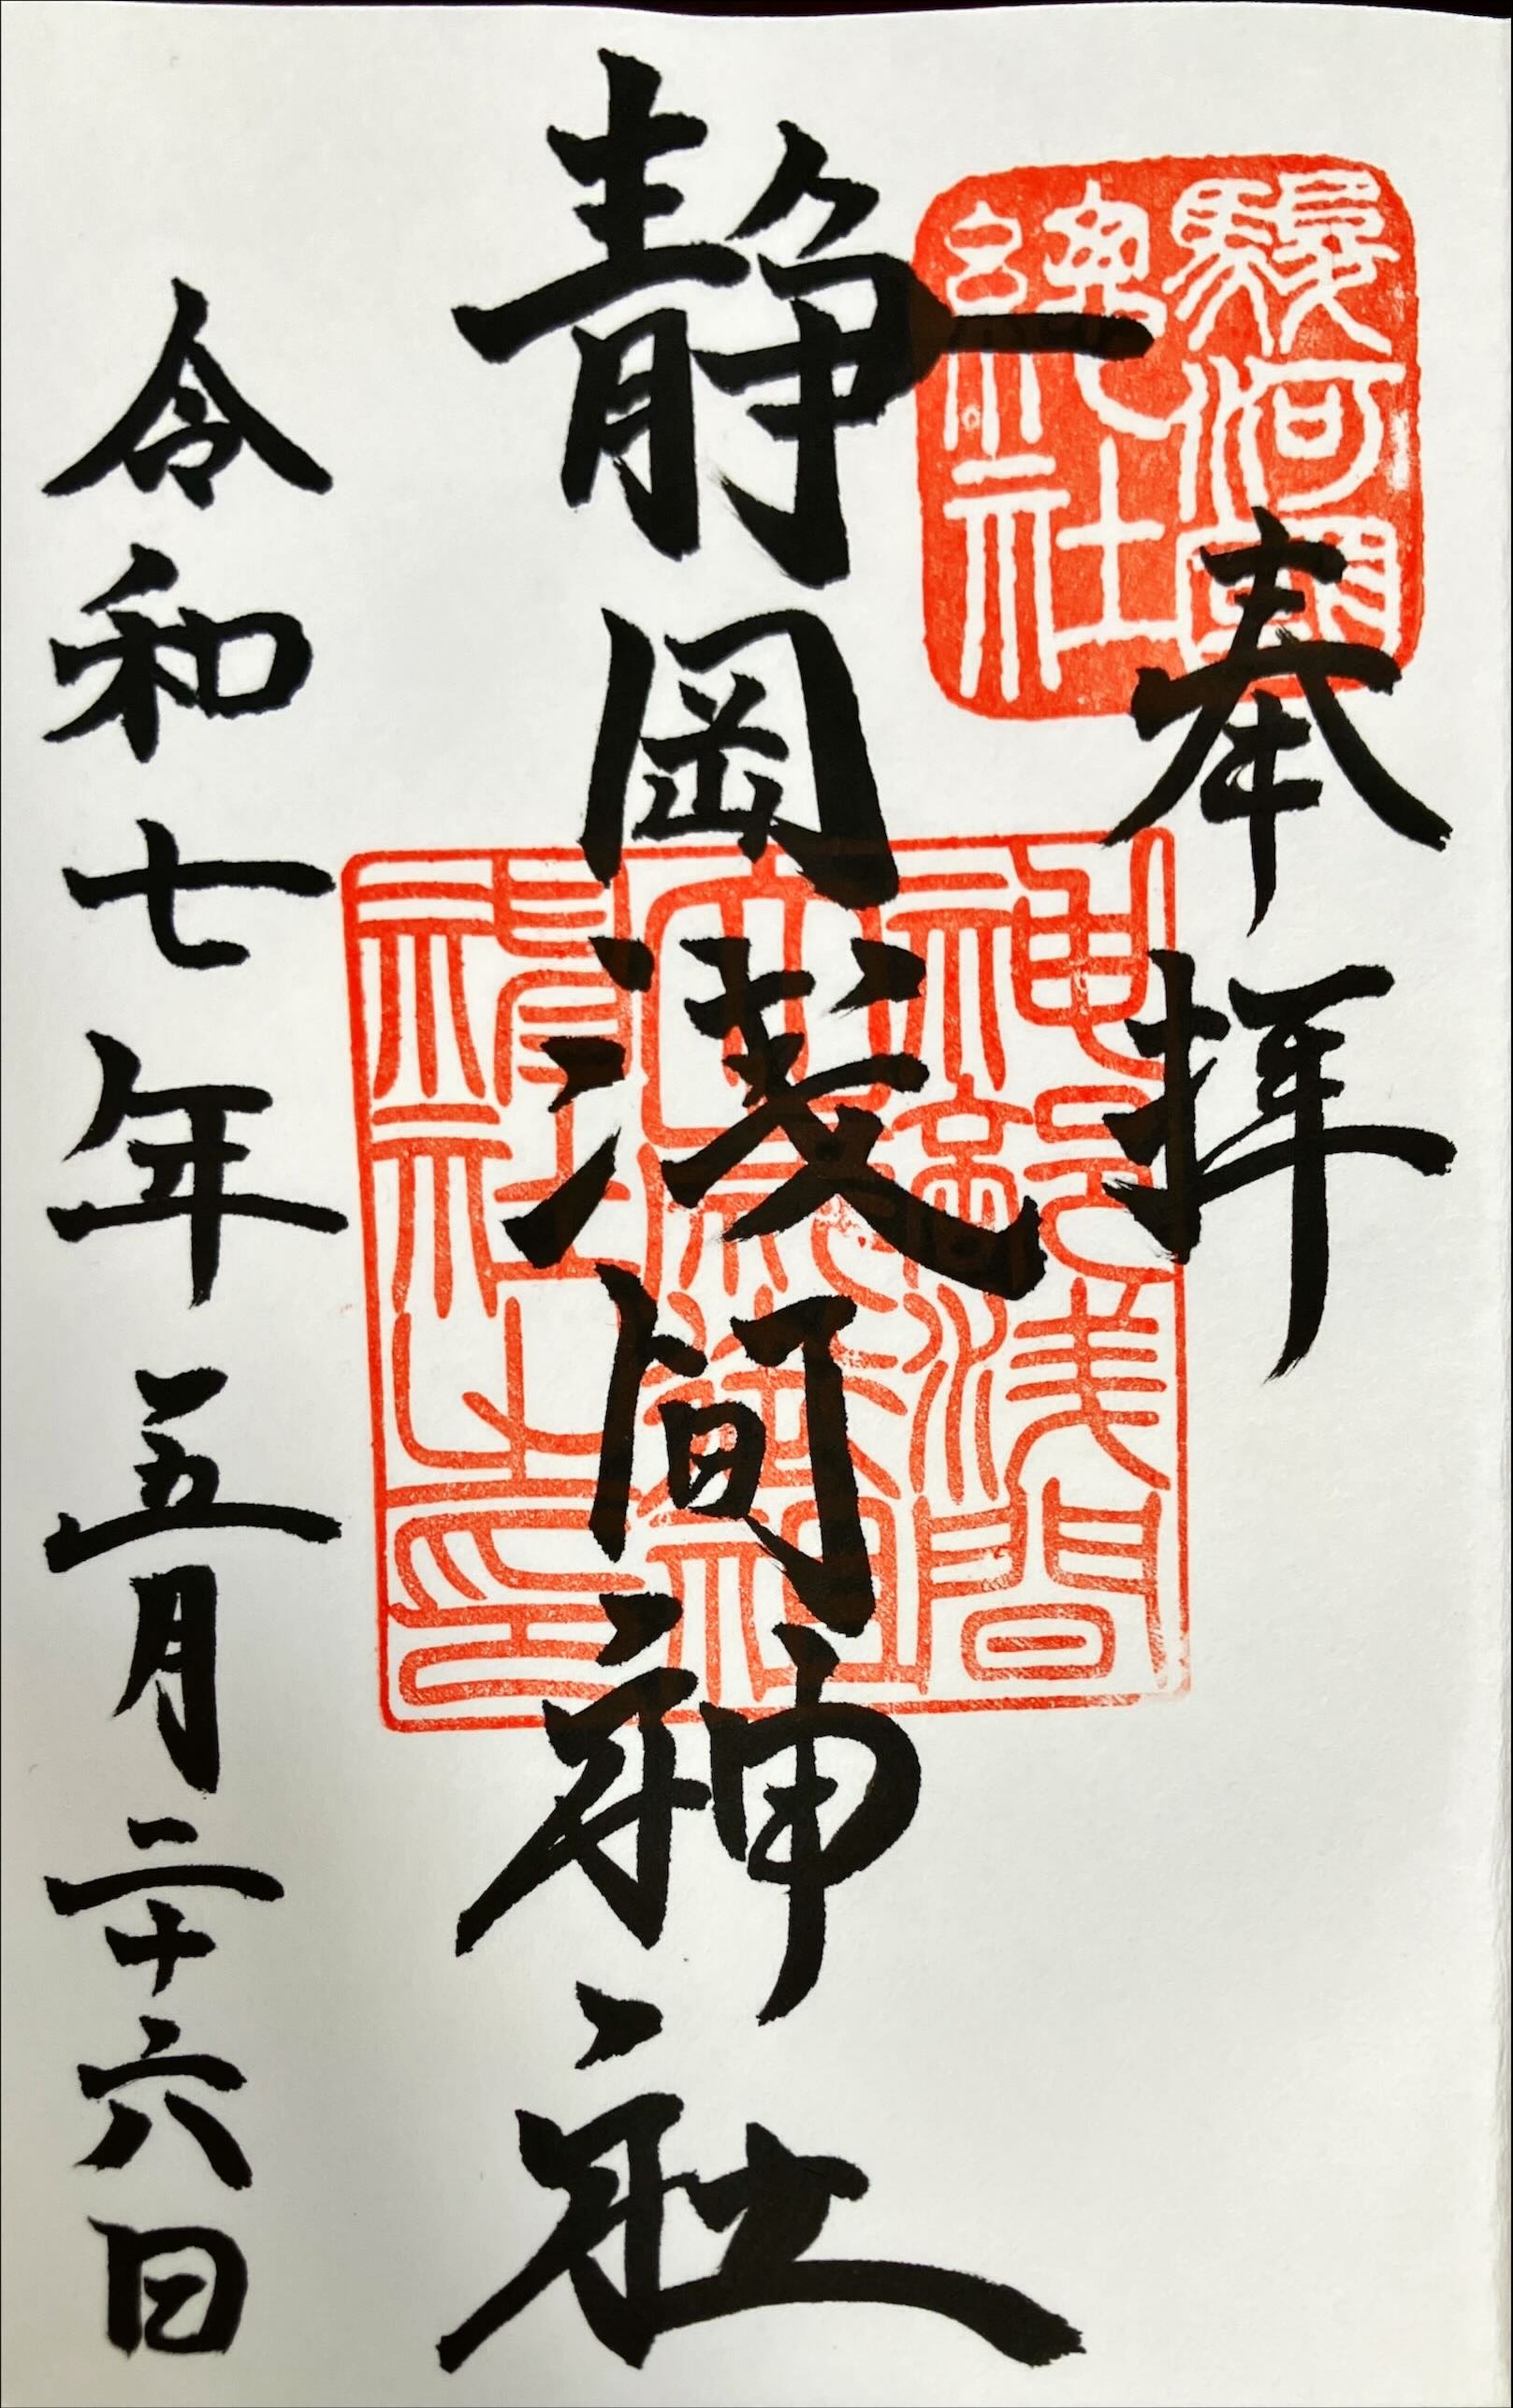 奉拝
駿河國
總社
静岡浅間神社
神部浅間
大歳御祖
神社之印
令和七年五月二十六日